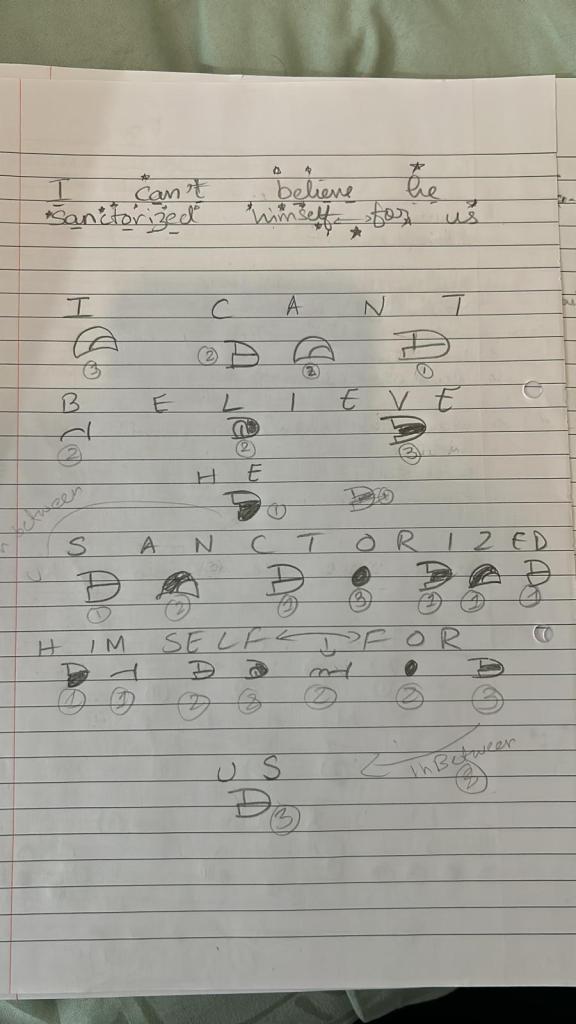 I can't believe he
sanctorized himself ↔ for us
I C A N T
3 2 2 1
B E L I E V E
2 2 3
H E
1
between
S A N C T O R I Z E D
1 2 1 3 1 1 1
H I M S E L F ↔ F O R
1 1 2 2 2 3
In Between
U S
3